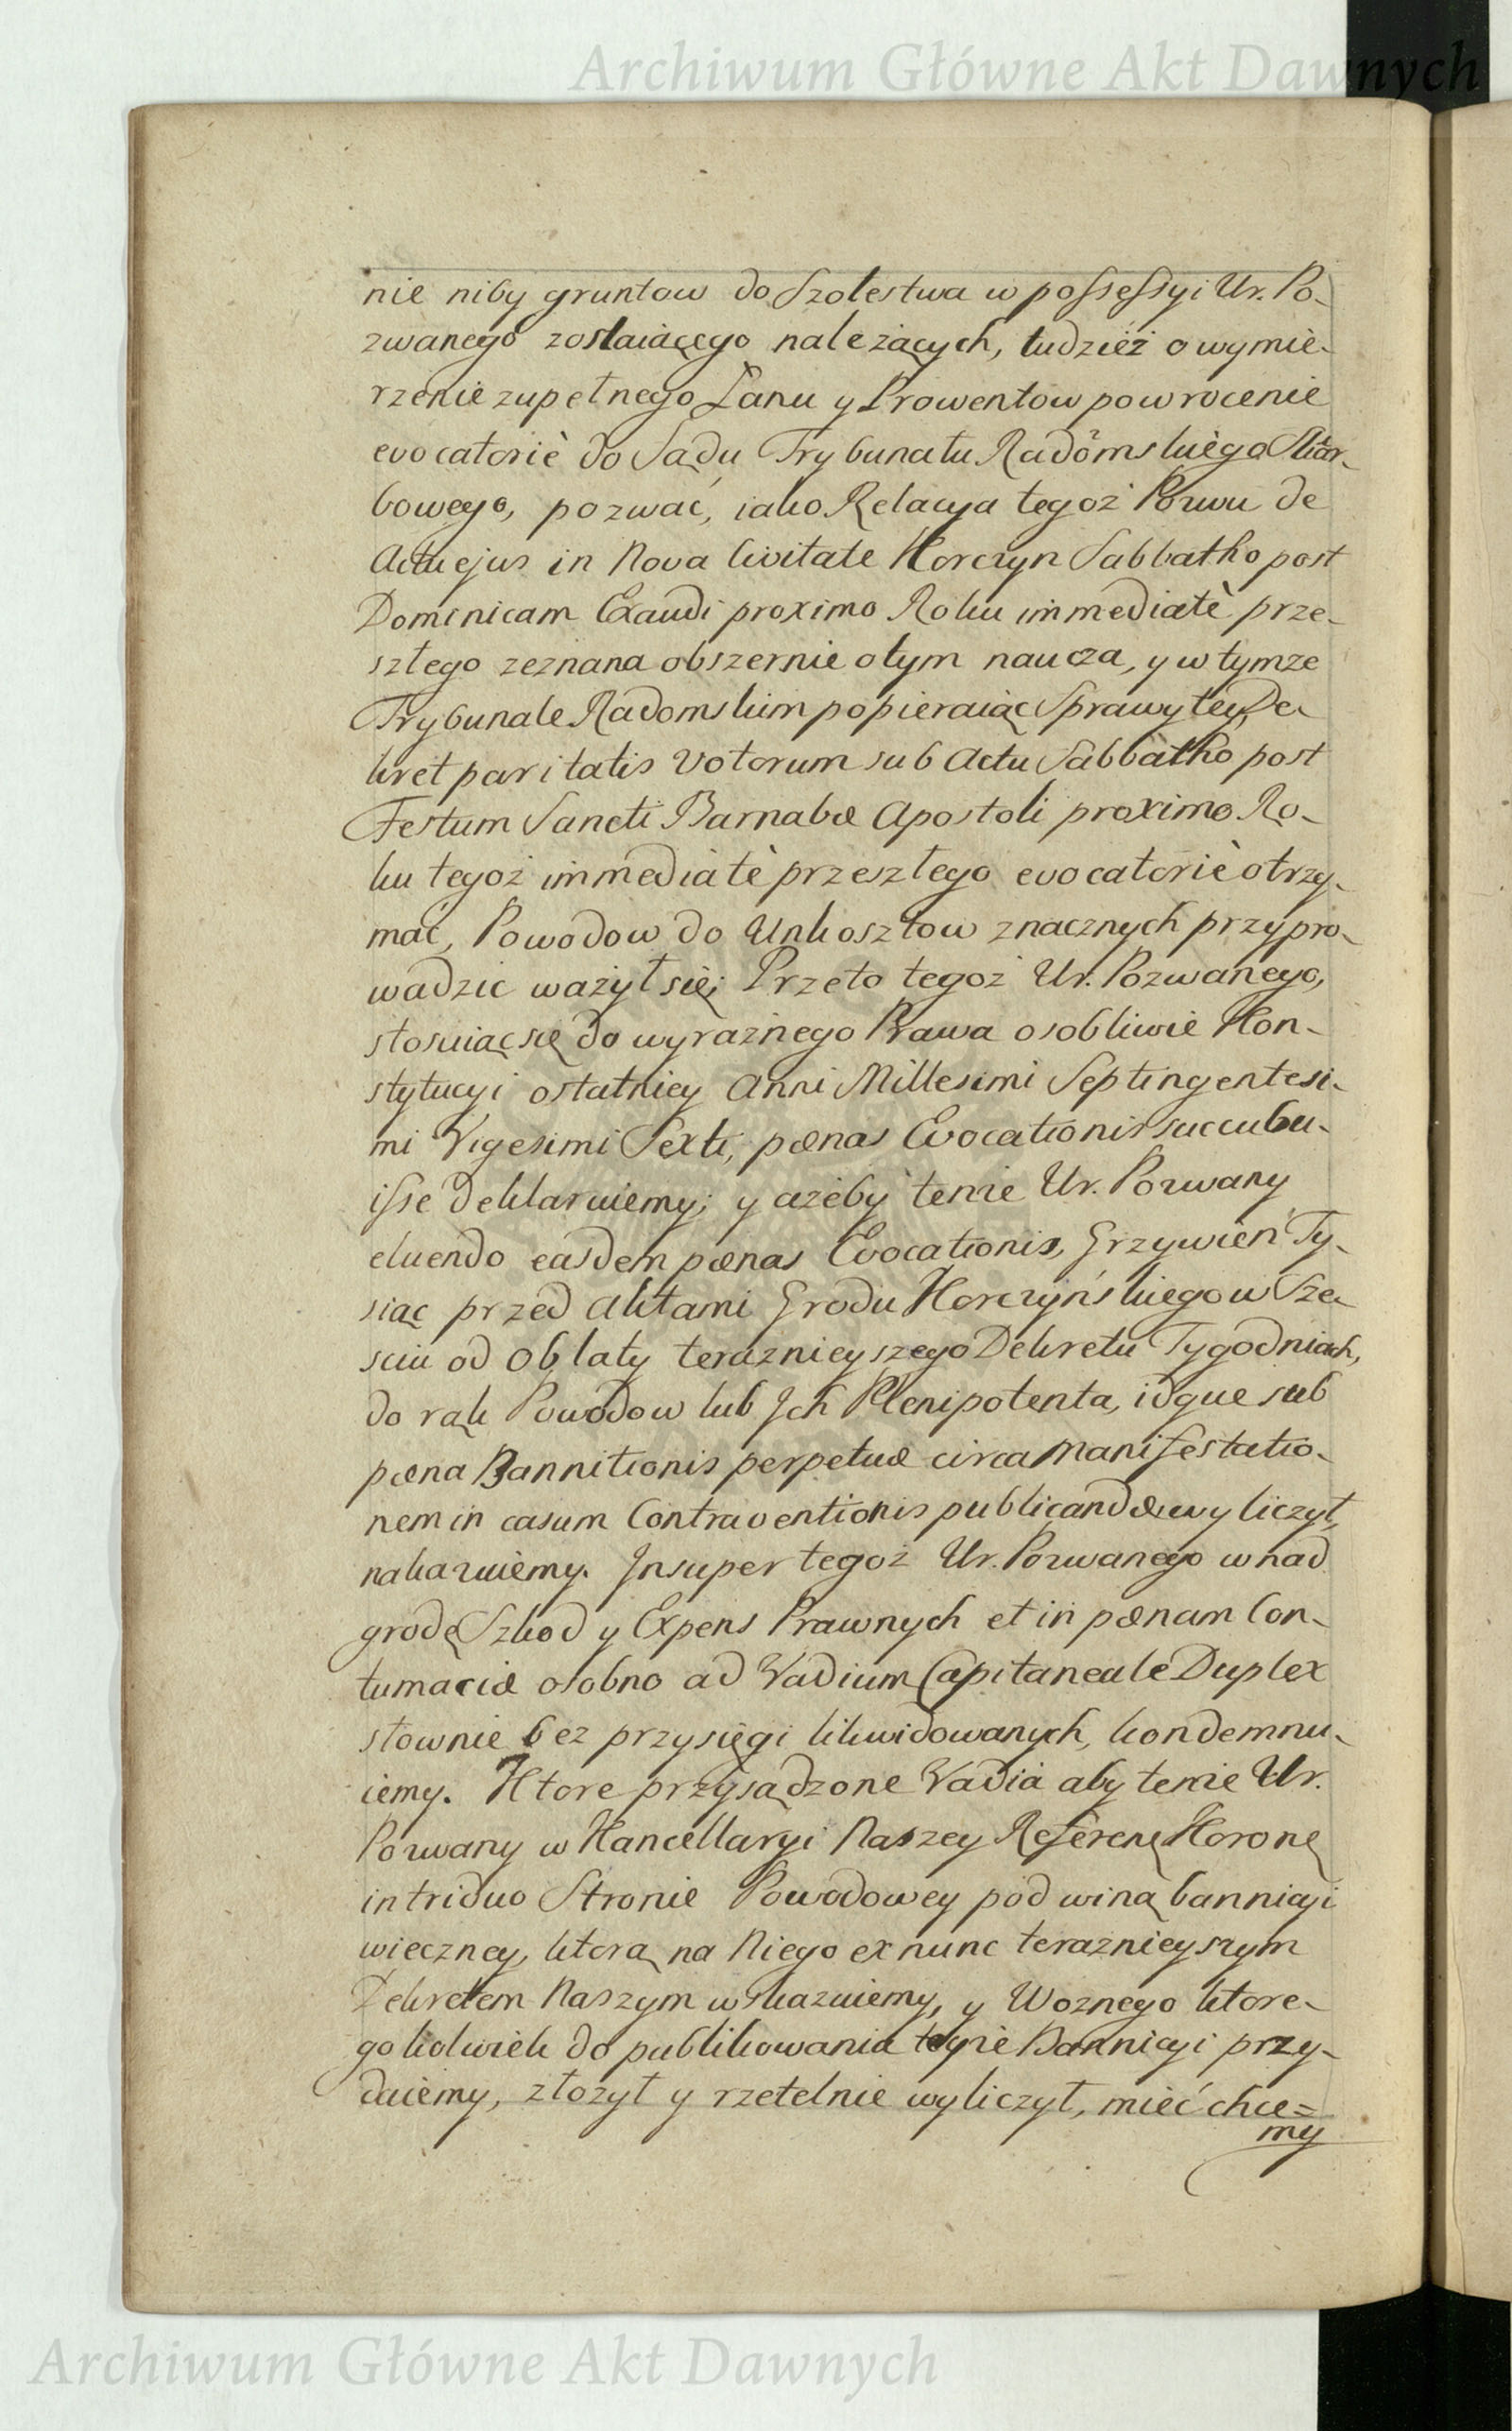 Archiwum Główne Akt Dawnych
nie niby gruntow do Szołestwa w possessyi Ur. Po-
zwanego zostaiącego należących, tudzież o wymie-
rzenie zupełnego Łanu y Prowentow powrocenie
evocatoriè do Sądu Trybunału Radomskiego Skar-
bowego, pozwać, iako Relacya tegoż Pozwu de
Actu ejus in Nova Civitate Korczyn Sabbatho post
Dominicam Exaudi proximo Roku immediatè prze-
szłego zeznana obszernie o tym naucza, y w tymze
Trybunale Radomskim popieraiąc Sprawy tey, De-
kret paritatis Votorum sub Actu Sabbatho post
Festum Sancti Barnabæ Apostoli proximo Ro-
ku tegoż immediatè przeszłego evocatoriè otrzy-
mać, Powodow do Unkosztow znacznych przypro-
wadzic ważył się; Przeto tegoż Ur. Pozwanego,
stosuiąc się do wyraźnego Prawa osobliwie Kon-
stytucyi ostatniey Anni Millesimi Septingentesi-
mi Vigesimi Sexti, pænas Evocationis succubu-
isse deklaruiemy; y ażeby tenże Ur. Pozwany
eluendo easdem pænas Evocationis, Grzywien Ty-
siąc przed Aktami Grodu Korczyńskiego w Sze-
sciu od Oblaty teraznieyszego Dekretu Tygodniach,
do rąk Powodow lub Jch Plenipotenta, idque sub
pæna Bannitionis perpetuæ circa Manifestatio-
nem in casum Contraventionis publicandæ wyliczył,
nakazuiemy. Jnsuper tegoż Ur. Pozwanego w nad
grodę Szkod y Expens Prawnych et in pænam Con-
tumaciæ osobno ad Vadium Capitaneale Duplex
słownie bez przysięgi likwidowanych, kondemnu-
iemy. Ktore przysądzone Vadia aby tenże Ur.
Pozwany w Kancellaryi Naszey Referen: Koronę
in triduo Stronie Powodowey pod winą bannicyi
wieczney, ktorą na Niego ex nunc teraznieyszym
Dekretem Naszym wskazuiemy, y Woznego ktore-
gokolwiek do publikowania teyże Bannicyi przy-
daiemy, złożył y rzetelnie wyliczył, mieć chce=
my
Archiwum Główne Akt Dawnych